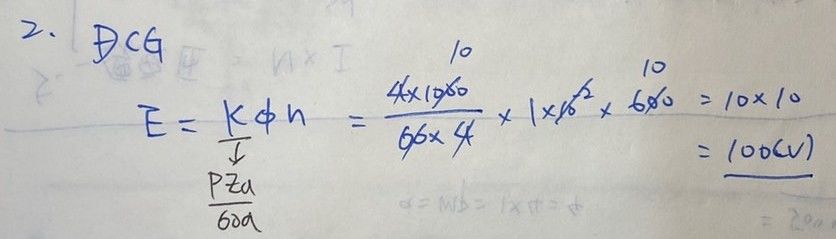 2. DCG
E = Kφn = (4×1000)/(60×4) × 1×10⁻² × 600 = 10×10
10 10
= 100(V)
↓
PZa/60a